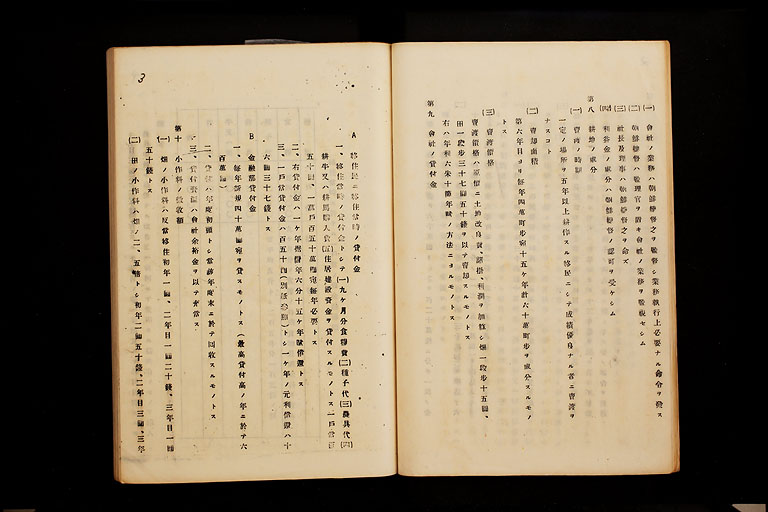 (一) 會社ノ業務ハ朝鮮總督之ヲ監督シ業務執行上必要ナル命令ヲ發ス
(二) 朝鮮總督ハ監理官ヲ置キ會社ノ業務ヲ監視セシム
(三) 社長及理事ハ朝鮮總督之ヲ命ズ
(四) 利益金ノ處分ハ朝鮮總督ノ認可ヲ受ケシム
第八 耕地ノ處分
(一) 賣渡ノ時期
一定ノ場所ヲ五年以上耕作スル移民ニシテ成績優良ナル者ニ賣渡ヲ
ナスコト
(二) 賣却面積
第六年目ヨリ每年四萬町步宛十五ケ年計六十萬町步ヲ處分スルモノ
トス
(三) 賣渡價格
賣渡價格ハ原價ニ土地改良費、諸掛、利潤ヲ加算シ畑一段步十五圓、
田一段步三十七圓五十錢ヲ以テ賣却スルモノトス
右ハ年利六朱十箇年賦ノ方法ニヨルモノトス
第九 會社ノ貸付金
3
A 移住民ニ移住當時ノ貸付金
一、移住當時ノ貸付金トシテ(一)九ケ月分食糧費(二)種子代(三)農具代(四)
耕牛又ハ耕馬購入費(五)住居建設資金ヲ貸付スルモノトス一戶當百
五十圓、一萬戶百五十萬圓宛每年必要トス
二、右貸付金ハ一ケ年据置年六分十五ケ年賦償還トス
三、一戶當貸付金ハ百五十圓(別紙參照)トシ一ケ年ノ元利償還ハ十
六圓三十七錢トス
B 金融部貸付金
一、每年新規四十萬圓宛ヲ貸スモノトス(最高貸付高ノ年ニ於テ六
百萬圓)
二、貸付ハ年度初頭トシ當該年度末ニ於テ回收スルモノトス
三、貸付資金ハ會社余裕金ヲ以テ充當ス
第十 小作料ノ徵收額
(一) 畑ノ小作料ハ反當移住初年一圓、二年目一圓二十錢、三年目一圓
五十錢トス
(二) 田ノ小作料ハ畑ノ二、五倍トシ初年二圓五十錢、二年目三圓、三年